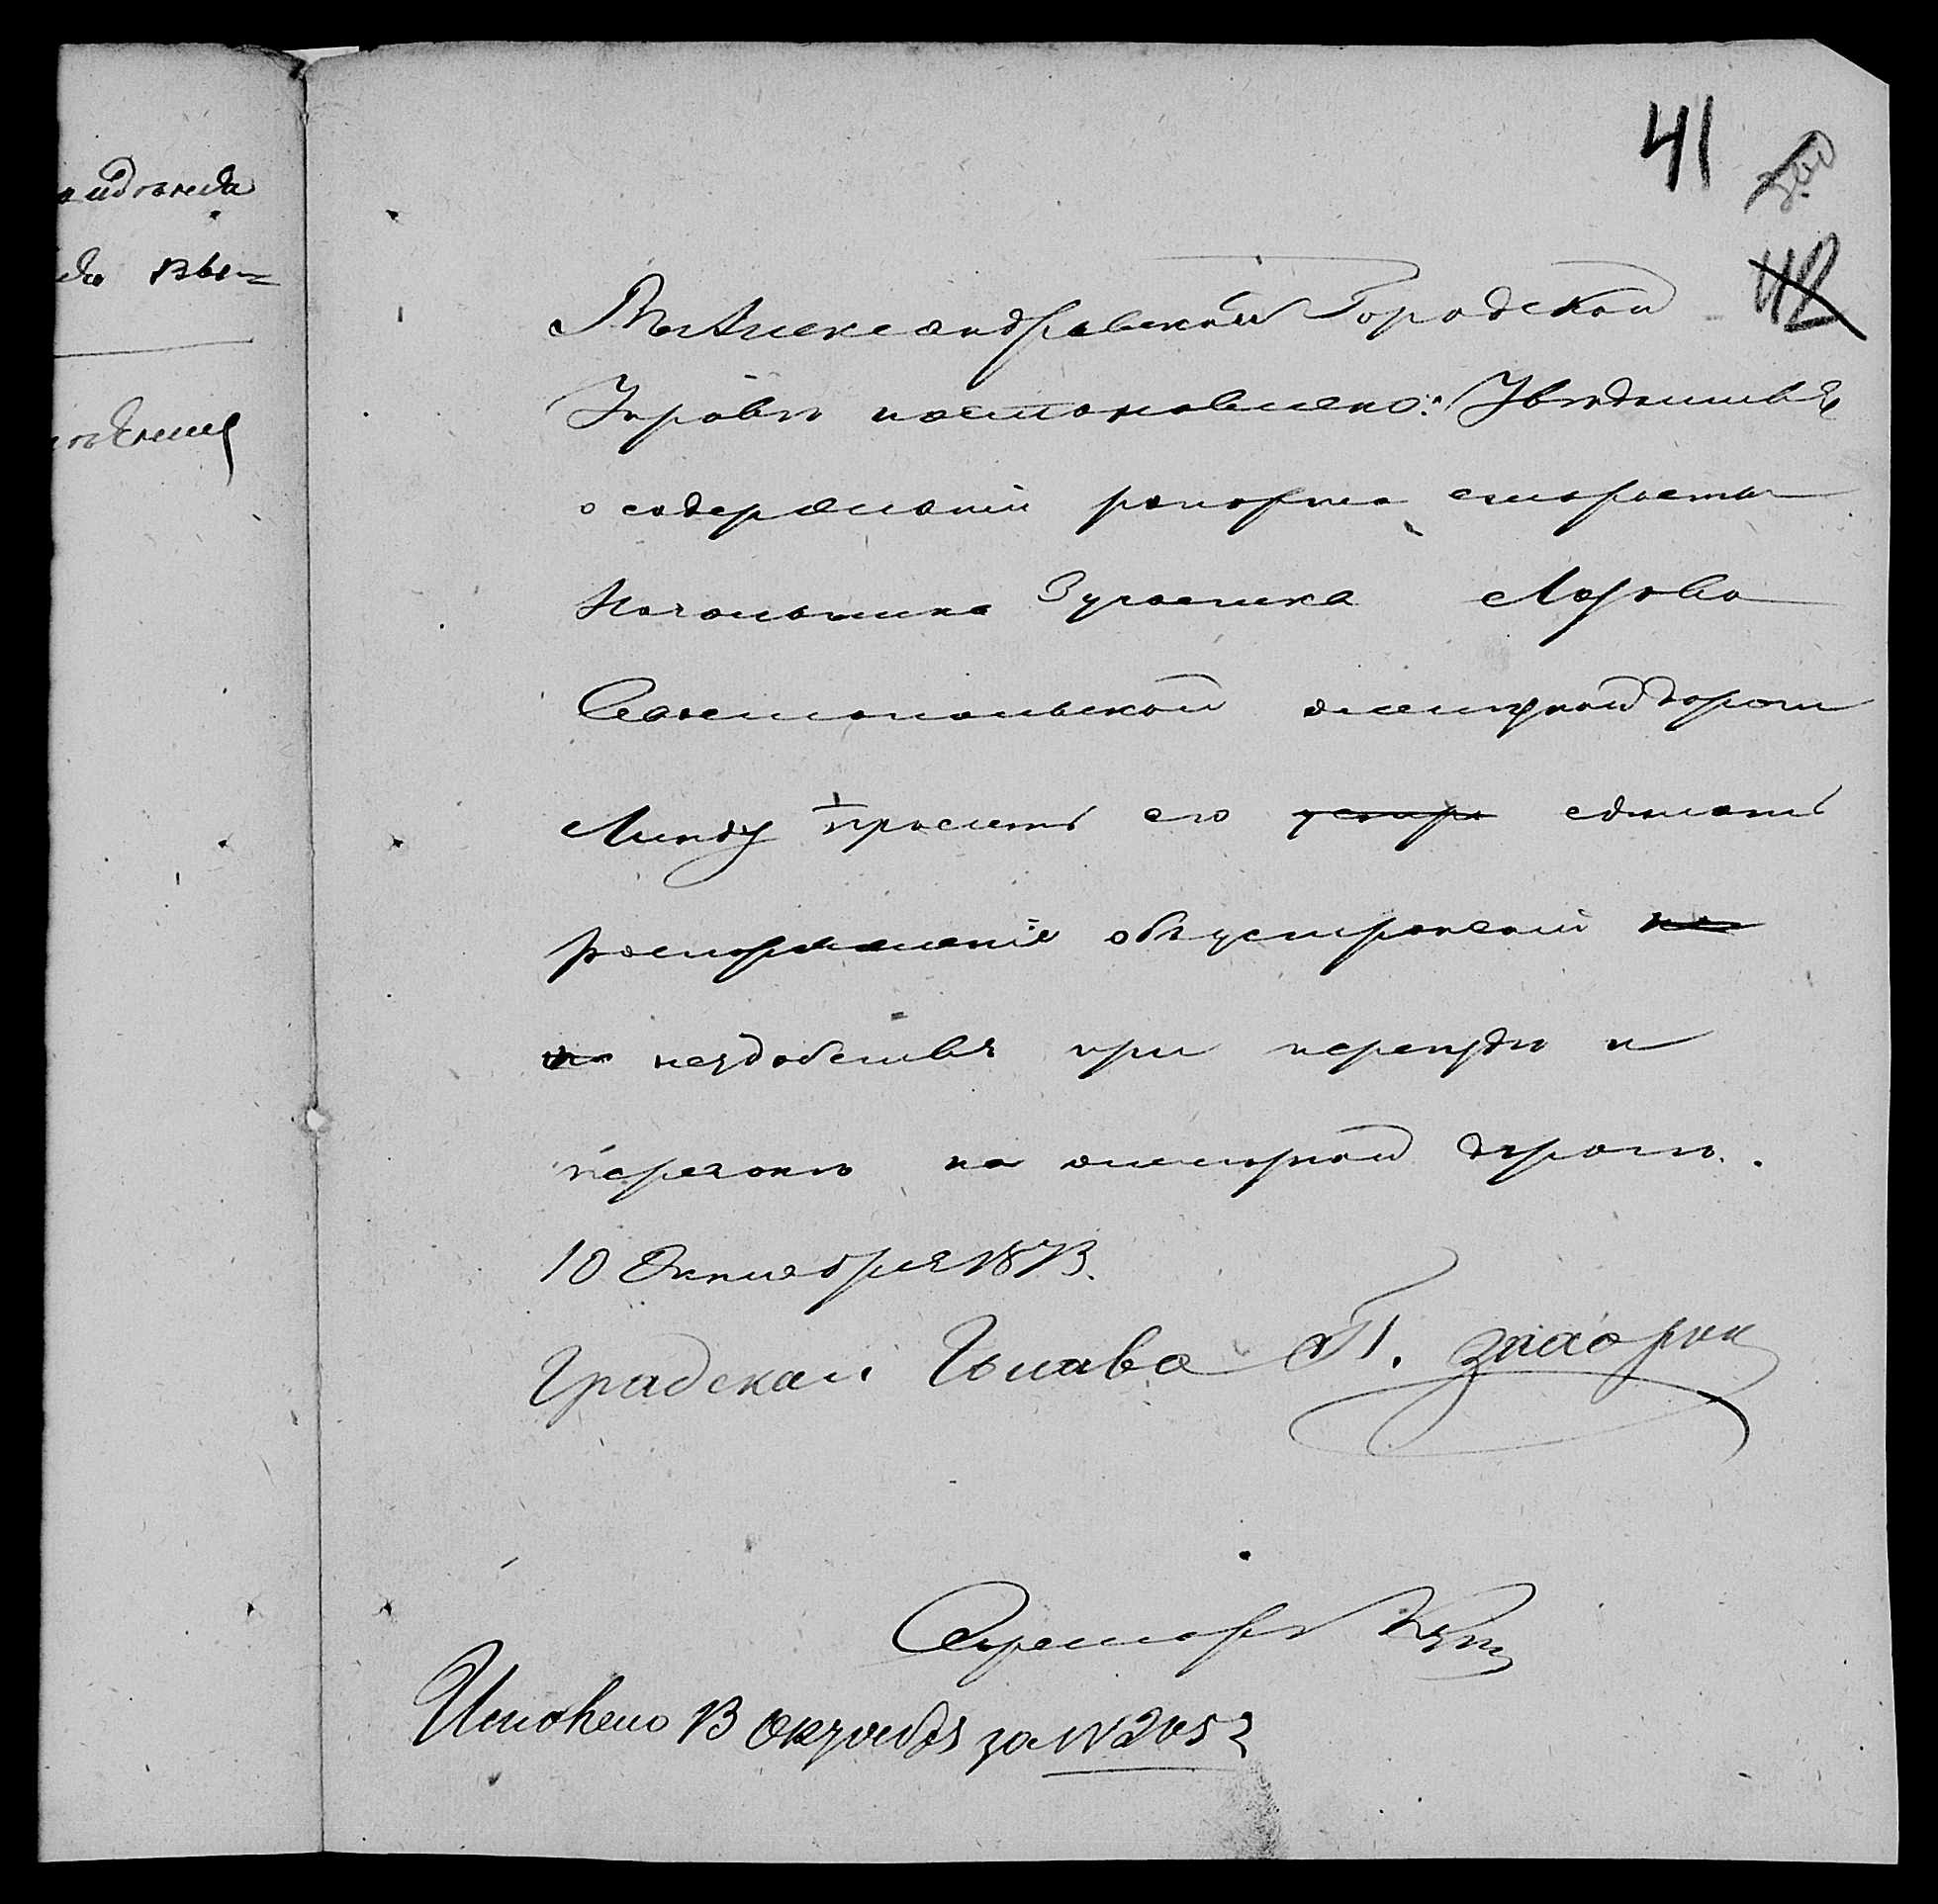 41
42
Въ Александровской Городской
Управѣ постановлено: Увѣдомивъ
о содержаніи рапорта старосты
Начальника участка Лозово
Севастопольской желѣзной дороги
просить его сдѣлать
распоряженіе объ устраненіи
неудобствъ при переѣздѣ и
перегонѣ на желѣзной дорогѣ.
10 Октября 1873.
Градской Глава П.
Секретарь
Исполнено 13 Октября за № 2052